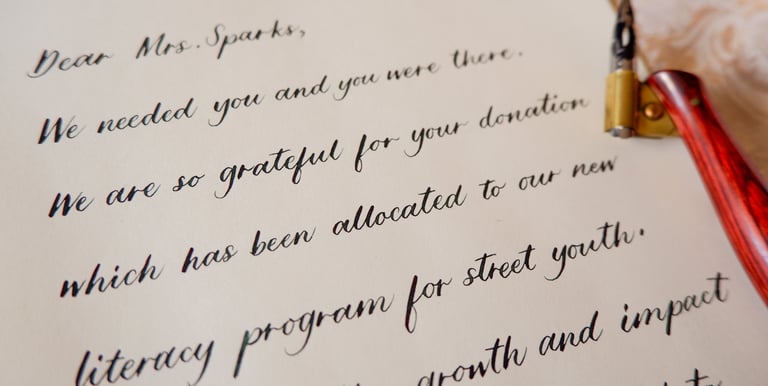 Dear Mrs. Sparks,
We needed you and you were there.
We are so grateful for your donation
which has been allocated to our new
literacy program for street youth.
growth and impact